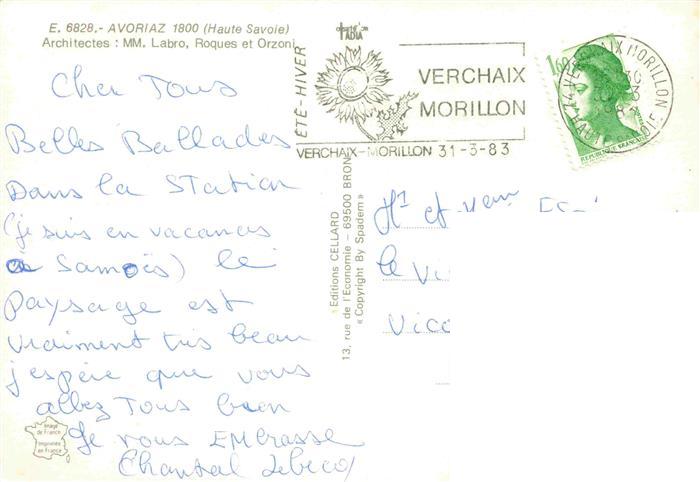 E. 6828.- AVORIAZ 1800 (Haute Savoie)
Architectes : MM. Labro, Roques et Orzoni
Cher Tous
Belles Ballades
Dans la Station
(je suis en vacances
à Samoës) le
paysage est
vraiment très beau
j'espère que vous
allez Tous bien
Je vous Embrasse
Chantal
Image
de France
Imprimée
en France
ÉTÉ-HIVER
VERCHAIX
MORILLON
VERCHAIX-MORILLON 31-3-83
1,60
REPUBLIQUE FRANÇAISE
74 VERCHAIX MORILLON
HAUTE SAVOIE
«Editions CELLARD
13, rue de l'Economie - 69500 BRON
« Copyright By Spadem»
et
le